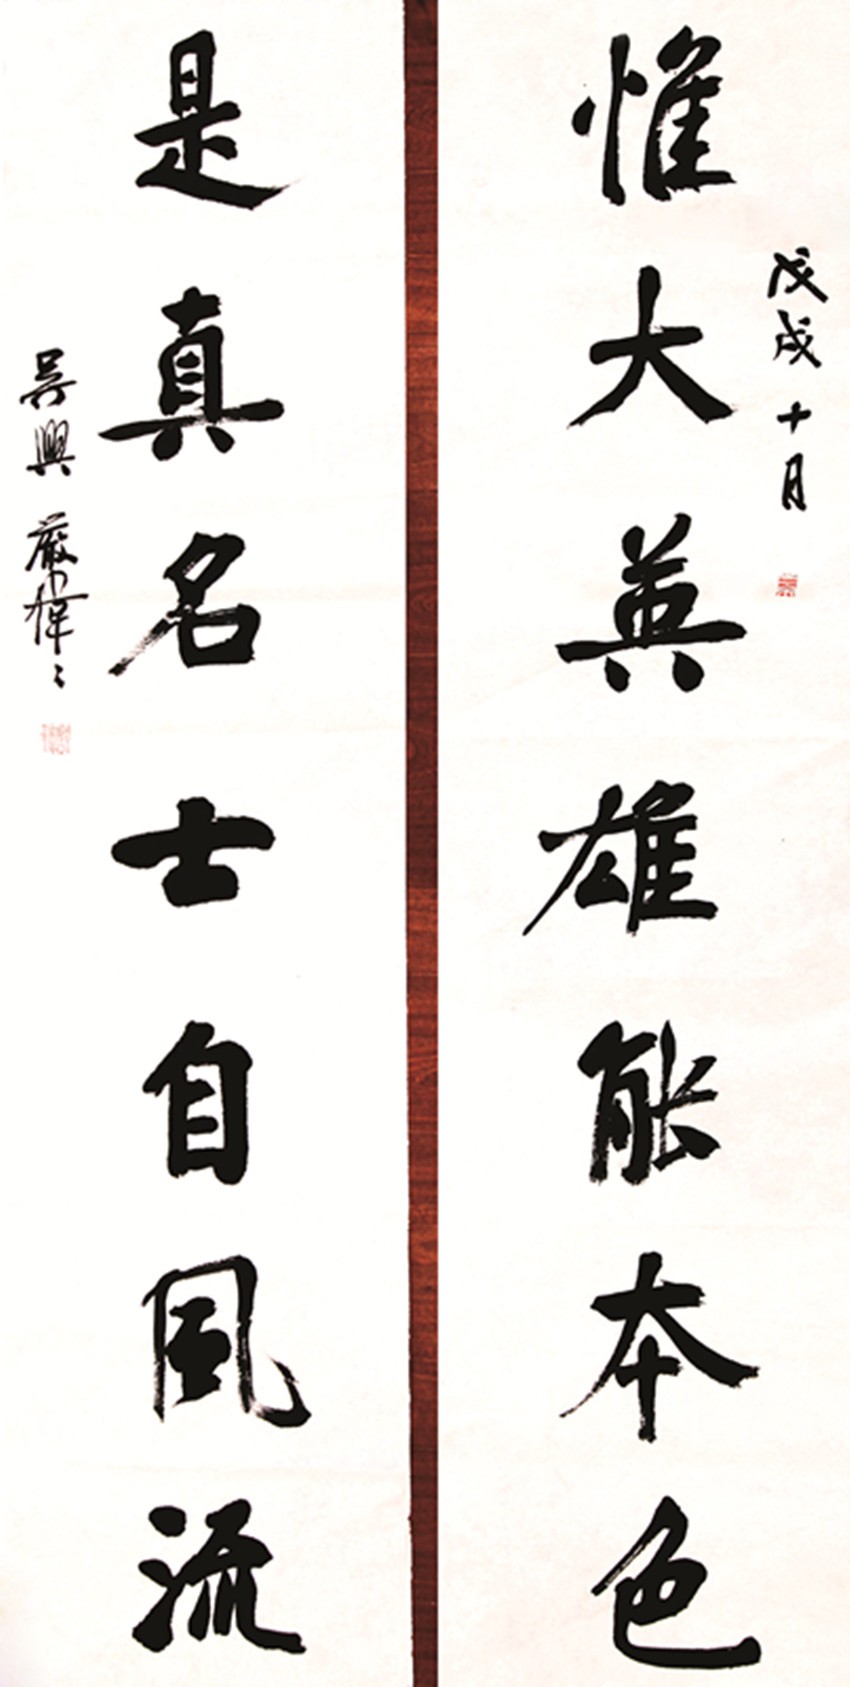 惟大英雄能本色
戊戌十月
是真名士自風流
吳興嚴偉